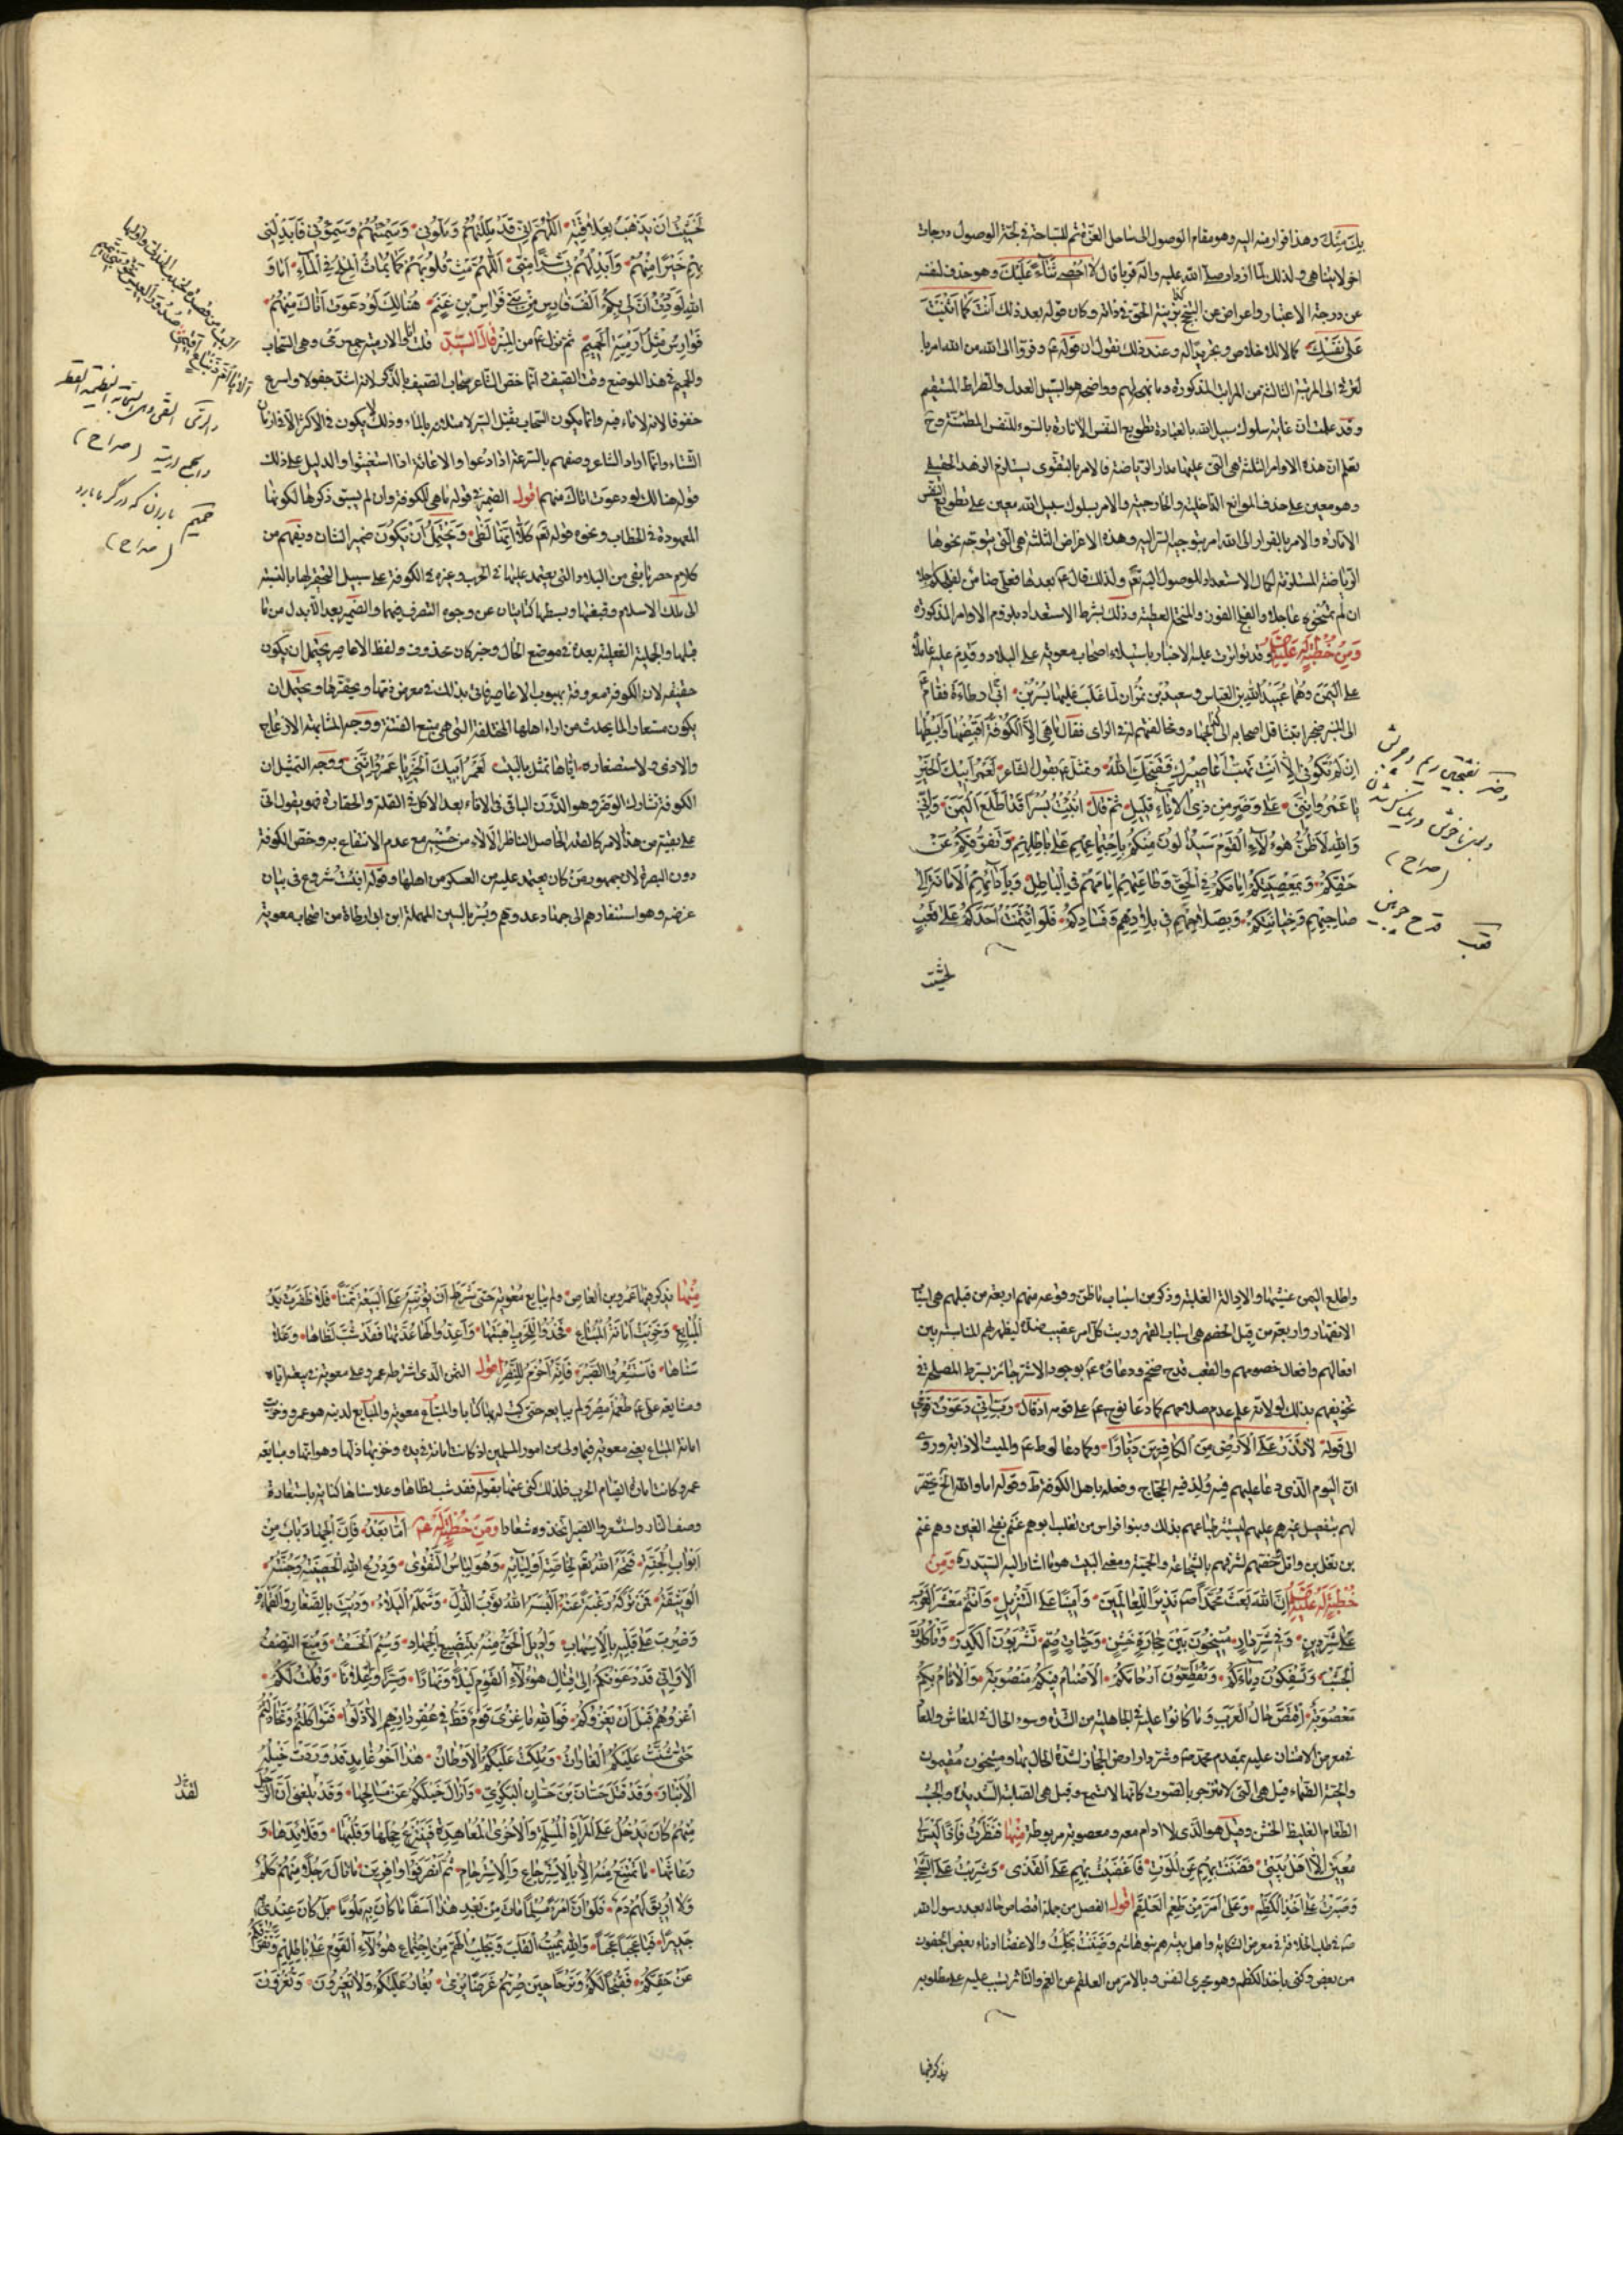 بك منك وهذا فرار منه اليه وهو مقام الوصول الى ساحل العزة ثم للسباحة في لجة الوصول درجات
اخر لا يتناهى ولذلك لما ازداد صلى الله عليه واله قربا قال لا احصي ثناء عليك وهو حذف لنفسه
عن درجة الاعتبار واعراض عن وكان قوله بعد ذلك انت كما اثنيت
على نفسك كمالا للاخلاص وتجريدا له وعند ذلك نقول ان قوله وفروا الى الله من الله امر با
لترقي الى المرتبة الثالثة من المراتب المذكورة وما نهجه لهم وواضحه هو السبيل العدل والصراط المستقيم
وقد علمت ان غاية سلوك سبيل الله بالعبادة تطويع النفس الامارة بالسوء للنفس المطمئنة وح
تعلم ان هذه الاوامر الثلثة هي التي عليها مدار الرياضة فالامر بالتقوى يستلزم الزهد الحقيقي
وهو معين على حذف الموانع الداخلية والخارجية والامر بسلوك سبيل الله معين على تطويع النفس
الامارة والامر بالفرار الى الله امر بتوجيه السر اليه وهذه الاغراض الثلثة هي التي يتوجه نحوها
الرياضة المستلزمة لكمال الاستعداد للوصول اليه تع ولذلك قال ع بعدها فعلي ضامن لفلجكم اجلا
ان لم تمنحوه عاجلا والفلج الفوز والمنحة العطية وذلك بشرط الاستعداد بلزوم الاوامر المذكورة
ومن خطبة له عليه السلم وقد تواترت عليه الاخبار باستيلاء اصحاب معوية على البلاد وقدم عليه عاملاه
على اليمن وهما عبيد الله بن العباس وسعيد بن نمران لما غلب عليهما بسر بن ابي ارطاة فقام ع
الى المنبر ضجرا بتثاقل اصحابه الى الجهاد ومخالفتهم له في الراى فقال ما هي الا الكوفة اقبضها وابسطها
ان لم تكوني الا انت تهب اعاصيرك فقبحك الله وتمثل ع بقول الشاعر لعمر ابيك الخير
يا عمرو انني على وضر من ذي الاناء قليل ثم قال انبئت بسرا قد اطلع اليمن واني
والله لاظن هولاء القوم سيدالون منكم باجتماعهم على باطلهم وتفرقكم عن
حقكم وبمعصيتكم امامكم في الحق وطاعتهم امامهم في الباطل وبادائهم الامانة الى
صاحبهم وخيانتكم وبصلاحهم في بلادهم وفسادكم فلو ائتمنت احدكم على قعب
لخشيت
وضر بفتحتين ريم وچربش
(صراح)
قعب قدح چوبين
لخشيت ان يذهب بعلاقته اللهم اني قد مللتهم وملوني وسئمتهم وسئموني فابدلني
بهم خيرا منهم وابدلهم بي شرا مني اللهم مث قلوبهم كما يماث الملح في الماء اما و
الله لوددت ان لي بكم الف فارس من بني فراس بن غنم هنالك لو دعوت اتاك منهم
فوارس مثل ارمية الحميم ثم نزل ع من المنبر قال السيد الارمية جمع رمي وهي السحاب
والحميم في هذا الموضع وقت الصيف وانما خص الشاعر سحاب الصيف بالذكر لانه اشد جفولا واسرع
خفوفا لانه لا ماء فيه وانما يكون السحاب ثقيل السير لامتلائه بالماء وذلك لا يكون في الاكثر الا في ازمان
الشتاء وانما اراد الشاعر وصفهم بالسرعة اذا دعوا والاغاثة اذا استغيثوا والدليل على ذلك
قوله هنالك لو دعوت اتاك منهم اقول الضمير في قوله ما هي للكوفة وان لم يسبق ذكرها لكونها
المعهودة في الخطاب ونحوه قوله تعم كلا انها لظى ويحتمل ان يكون ضمير الشان ويفهم من
كلامه حصر ما بقي من البلاد التي يعتمد عليها في الحرب وغيره في الكوفة على سبيل التحقير لها بالنسبة
الى ملك الاسلام وقبضها وبسطها كنايتان عن وجوه التصرف فيها والضمير بعد الا بدل من ما
قبلها والجملة الفعلية بعده في موضع الحال وخبر كان محذوف ولفظ الاعاصير يحتمل ان يكون
حقيقة لان الكوفة معروفة بهبوب الاعاصير فاتى بذلك في معرض ذمها وتحقيرها ويحتمل ان
يكون مستعارا لما يحدث من اراء اهلها المختلفة التي هي منبع الفتنة ووجه المشابهة الازعاج
والاذى ولاستصغاره اياها تمثل بالبيت لعمر ابيك الخير يا عمرو انني ووجه التمثيل ان
الكوفة تشارك الوضر وهو الدرن الباقي في الاناء بعد الاكل في القلة والحقارة فهو يقول اني
على بقية من هذا الامر كالقدر الحاصل الناظر مع عدم الانتفاع به وخص الكوفة
دون البصرة لان جمهور من كان يعتمد عليه من العسكر من اهلها وقوله انبئت شروع في بيان
غرضه وهو استنفارهم الى جهاد عدوهم وبسر بالسين المهملة ابن ابي ارطاة من اصحاب معوية
(صراح)
(صراح)
واطلع اليمن غشيها والادالة الغلبة وذكر من اسباب ما ظن وقوعه منهم اربعة من قبلهم هي اسباب
الانقهار واربعة من قبل الخصم هي اسباب القهر ورتب كل امر عقيب ضده ليظهر لهم المناسبة بين
افعالهم وافعال خصومهم والقعب قدح ضخم ودعاؤه ع بوجود الاشر جائز بشرط المصلحة في
تخويفهم بذلك او لانه علم عدم صلاحهم كما دعا نوح ع على قومه اذ قال رب اني دعوت قومي
الى قوله لا تذر على الارض من الكافرين ديارا وكما دعا لوط ع والميث الاذابة وروى
ان اليوم الذي دعا عليهم فيه ولد فيه الحجاج وفعله باهل الكوفة ظ وقوله اما والله الخ تحقير
لهم بتفضيل غيرهم عليهم ليستثير طباعهم بذلك وبنوا فراس من تغلب ابوهم غنم بفتح الغين وهم غنم
بن تغلب بن وائل خصهم لشهرتهم بالشجاعة والحمية ومعنى البيت هو ما اشار اليه السيد ره ومن
خطبة له عليه السلم ان الله بعث محمدا صم نذيرا للعالمين وامينا على التنزيل وانتم معشر العرب
على شر دين وفي شر دار منيخون بين حجارة خشن وحيات صم تشربون الكدر وتاكلون
الجشب وتسفكون دماءكم وتقطعون ارحامكم الاصنام فيكم منصوبة والاثام بكم
معصوبة اقتص حال العرب وما كانوا عليه في الجاهلية من الشدة وسوء الحال في المعاش والمعاد
في معرض الامتنان عليهم بمقدم محمد ص وشر دار اراض الحجاز لشدة الحال بها ومنيخون مقيمون
والحية الصماء قيل هي التي لا تنزجر بالصوت كانها لا تسمع وقيل هي الصلبة الشديدة والجشب
الطعام الغليظ الخشن وقيل هو الذي لا ادام معه ومعصوبة مربوطة منها فنظرت فاذا ليس لي
معين الا اهل بيتي فضننت بهم عن الموت فاغضيت بهم على القذى وشربت على الشجى
وصبرت على اخذ الكظم وعلى امر من طعم العلقم اقول الفصل من جملة اقتصاص حاله بعد رسول الله
ص في طلب الخلافة في معرض الشكاية واهل بيته هم بنو هاشم وضننت بخلت والاغضاء ادناء بعض الجفون
من بعض وكنى باخذ الكظم وهو مجرى النفس وبالامر من العلقم عن الغم والتاثر بسبب غلبة على مطلوبه
يذكر فيها
منها يذكر فيها عمرو بن العاص ولم يبايع معوية حتى شرط ان يؤتيه على البيعة ثمنا فلا ظفرت يد
المبايع وخزيت امانة المبتاع فخذوا للحرب اهبتها واعدوا لها عدتها فقد شب لظاها وعلا
سناها فاستشعروا الصبر فانه احزم للنصر اقول الثمن الذي اشترطه عمرو على معوية في بيعته اياه
ومشايعته على ع طعمة مصر ولم يبايعه حتى كتب له بها كتابا والمبتاع معوية والمبايع لدينه هو عمرو وخزيت
امانة المبتاع يعني معوية فيما ولى من امور المسلمين اذ كانت امانة في يده وخزيها ذلها وهوانها ومبايعة
عمرو كانت امارة لقيام الحرب فلذلك كنى عنها بقوله فقد شب لظاها وعلا سناها كناية باستعارة
وصف النار واستشعروا الصبر اتخذوه شعارا ومن خطبة له ع اما بعد فان الجهاد باب من
ابواب الجنة فتحه الله تعم لخاصة اوليائه وهو لباس التقوى ودرع الله الحصينة وجنته
الوثيقة فمن تركه رغبة عنه البسه الله ثوب الذل وشمله البلاء وديث بالصغار والقماءة
وضرب على قلبه بالاسهاب واديل الحق منه بتضييع الجهاد وسيم الخسف ومنع النصف
الا واني قد دعوتكم الى قتال هولاء القوم ليلا ونهارا وسرا واعلانا وقلت لكم
اغزوهم قبل ان يغزوكم فوالله ما غزي قوم قط في عقر دارهم الا ذلوا فتواكلتم وتخاذلتم
حتى شنت عليكم الغارات وملكت عليكم الاوطان هذا اخو غامد قد وردت خيله
الانبار وقد قتل حسان بن حسان البكري وازال خيلكم عن مسالحها وقد بلغني ان الرجل
لقد
منهم كان يدخل على المراة المسلمة والاخرى المعاهدة فينتزع حجلها وقلبها وقلائدها و
رعاثها ما تمتنع منه الا بالاسترجاع والاسترحام ثم انصرفوا وافرين ما نال رجلا منهم كلم
ولا اريق لهم دم فلو ان امرء مسلما مات من بعد هذا اسفا ما كان به ملوما بل كان عندي
جديرا فيا عجبا عجبا والله يميت القلب ويجلب الهم من اجتماع هولاء القوم على باطلهم وتفرقكم
عن حقكم فقبحا لكم وترحا حين صرتم غرضا يرمى يغار عليكم ولا تغيرون وتغزون